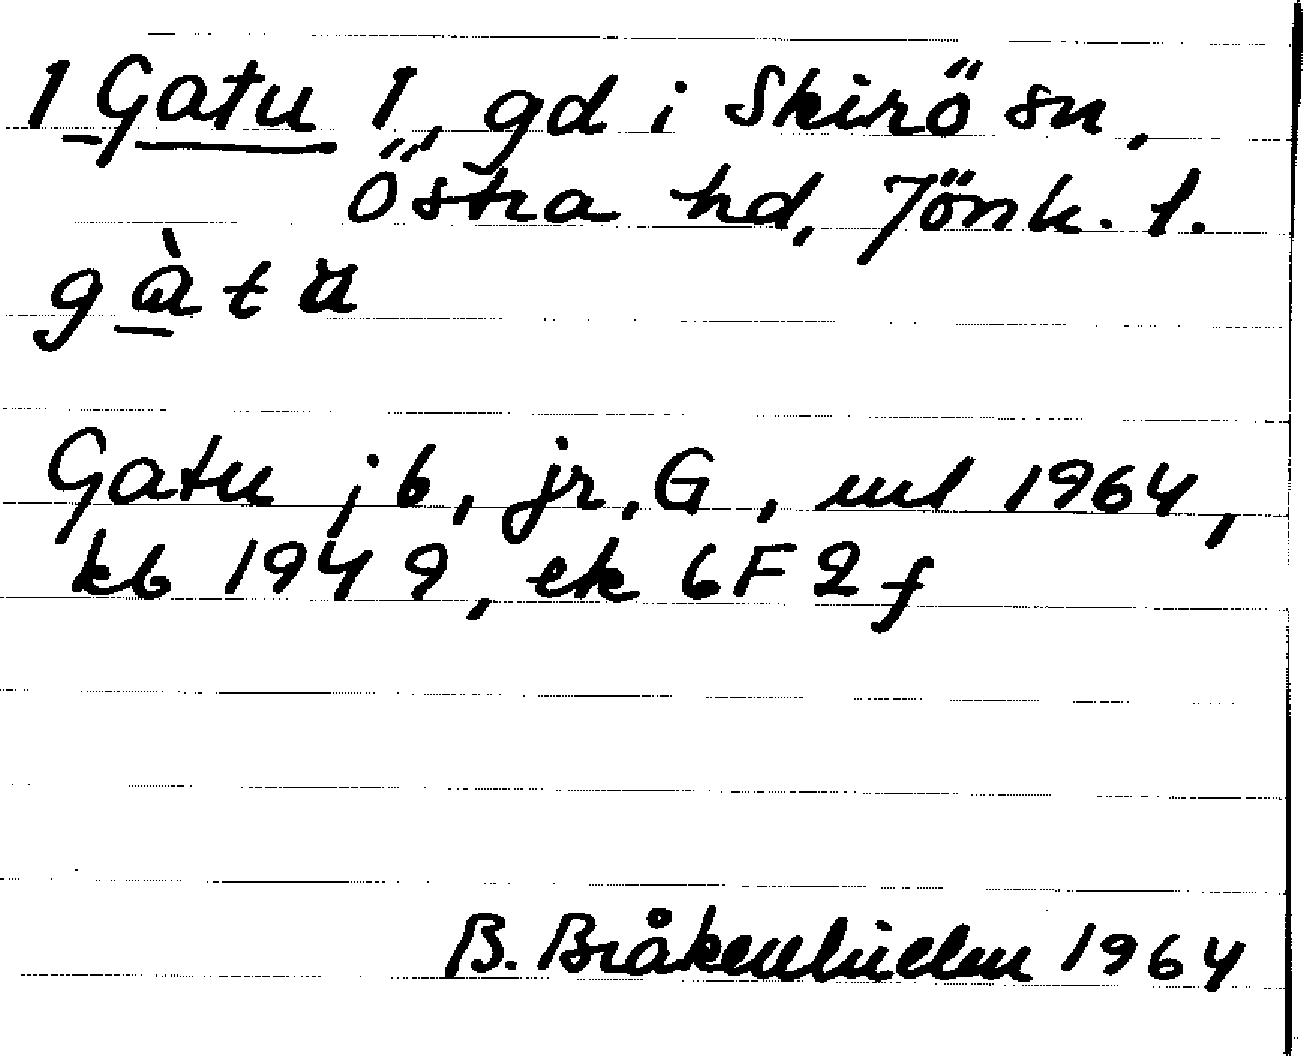 1 Gatu 1, gd i Skirö sn,
Östra hd, Jönk. l.
gàtu
Gatu jb, jr, G, ml 1964,
kb 1949, ek 6F2f
B. 1964